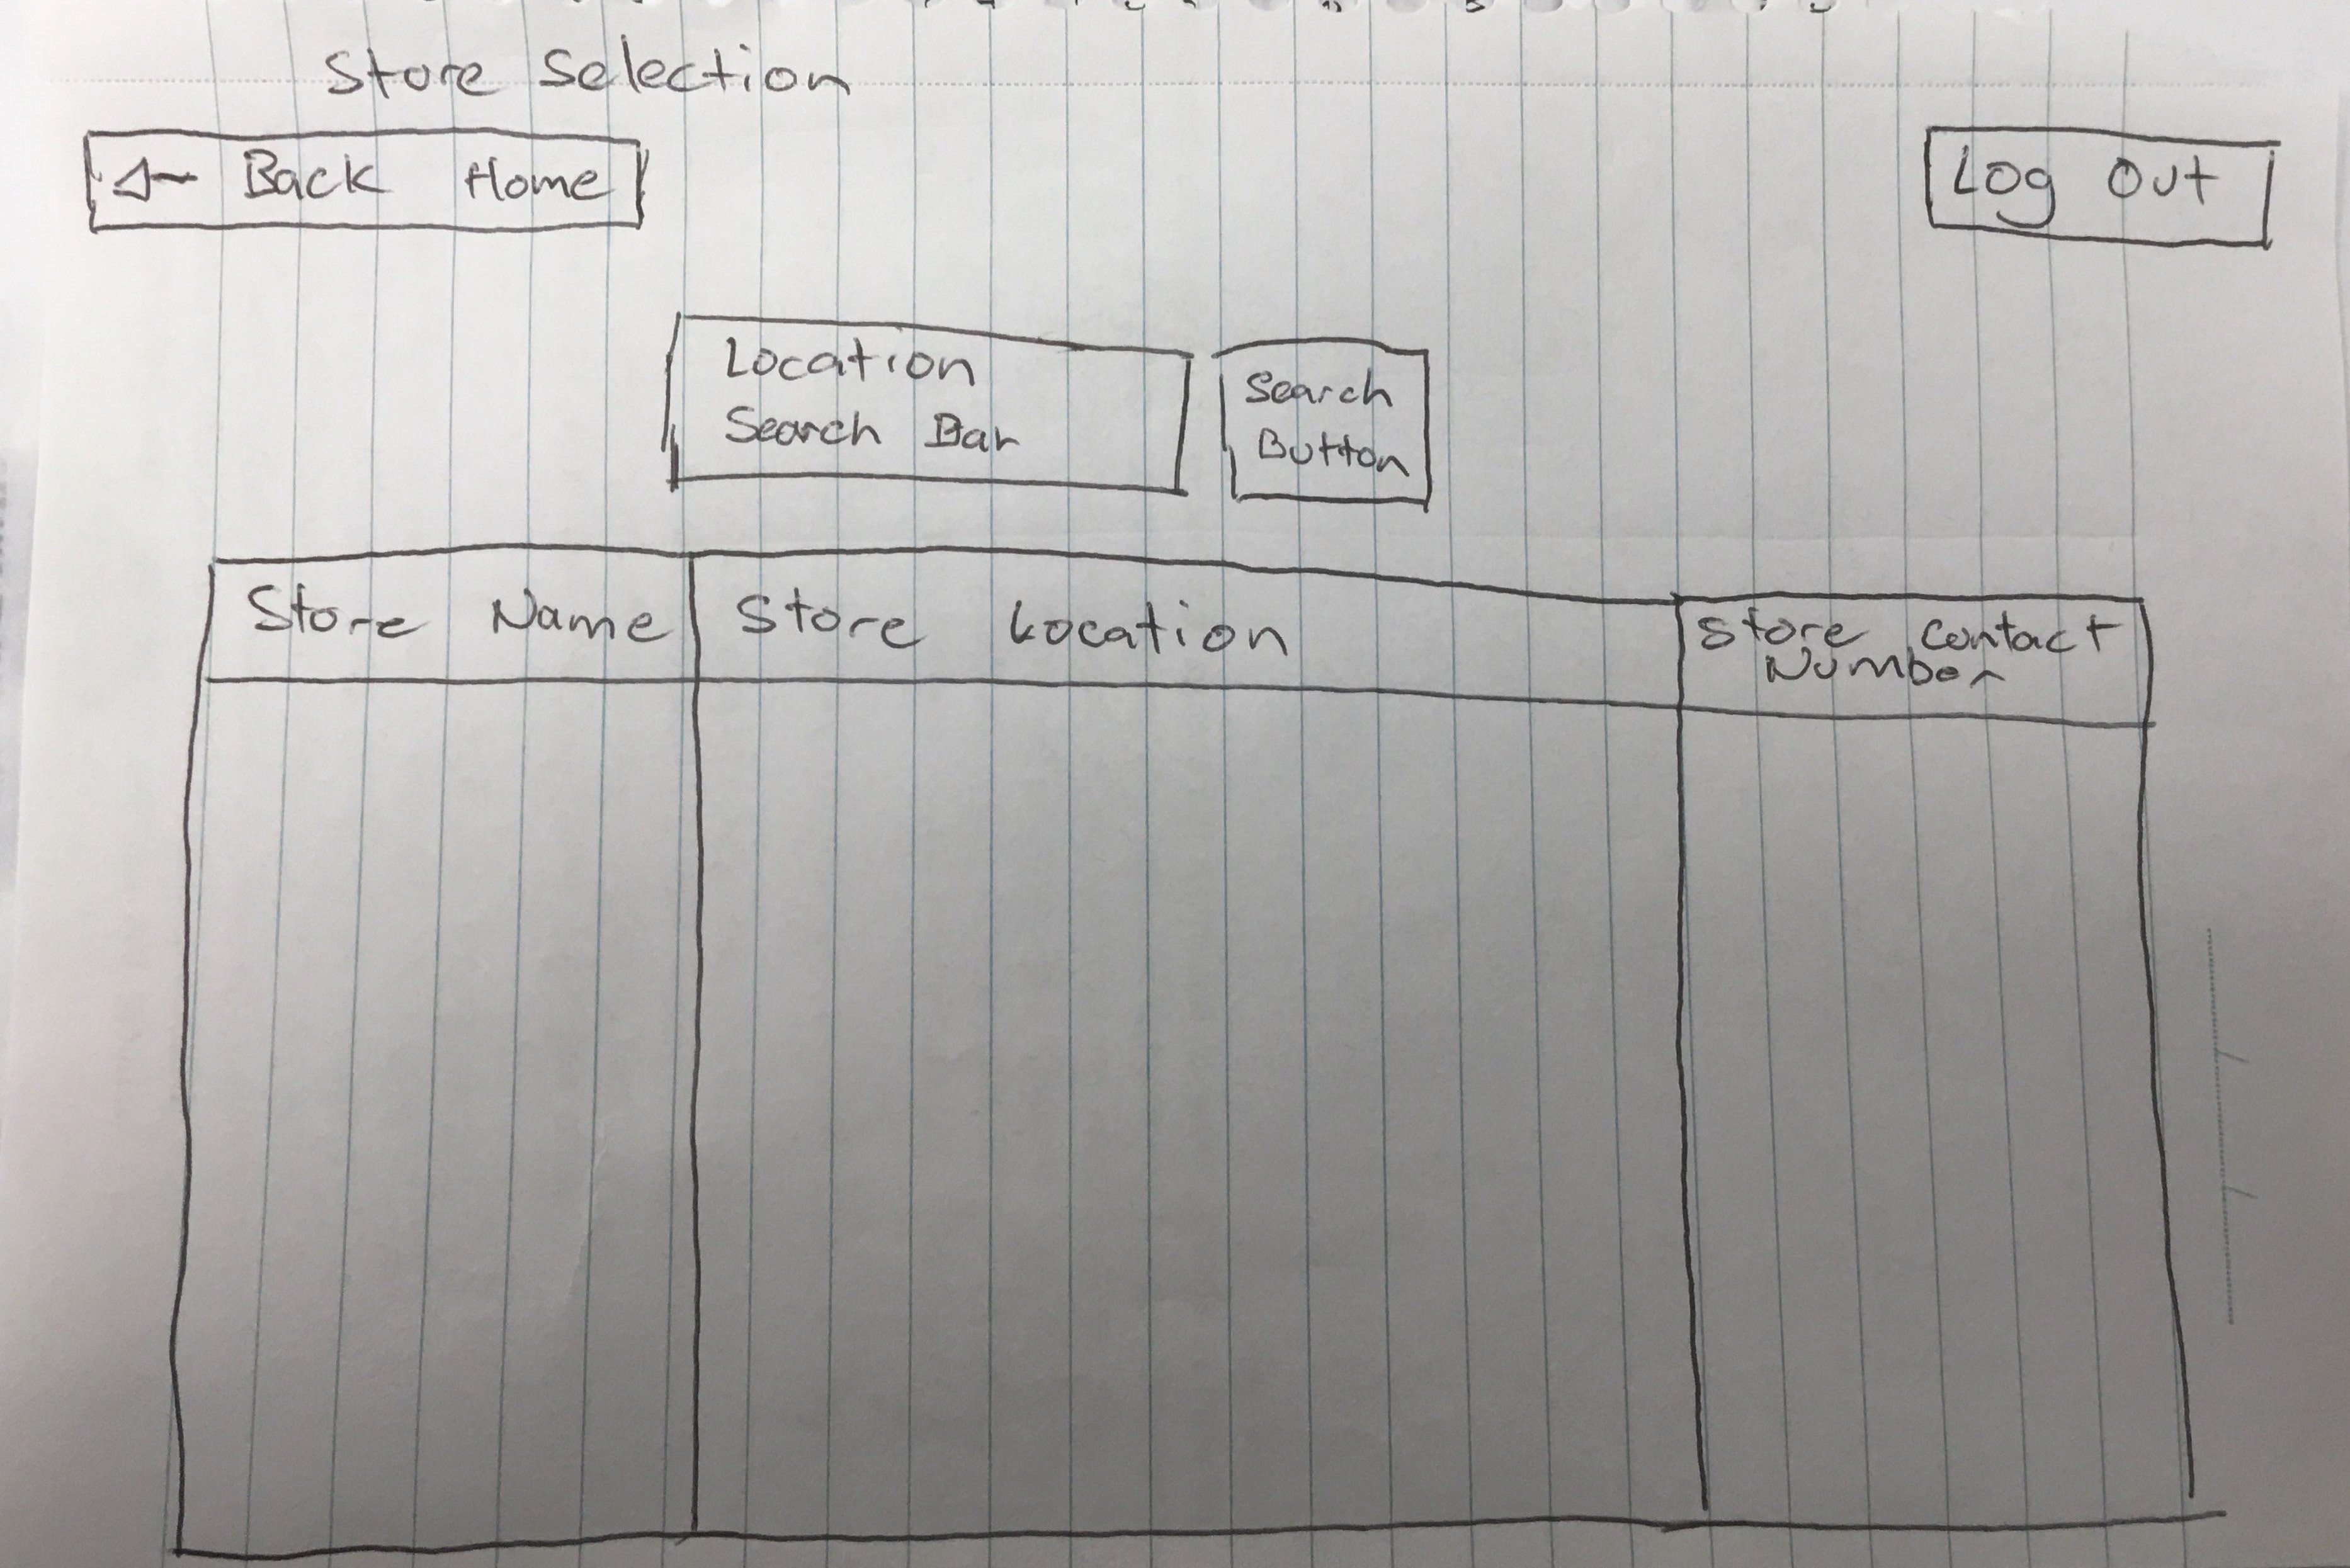 Store Selection
Back Home
Log Out
Location
Search Bar
Search
Button
Store Name
Store Location
Store Contact
Number